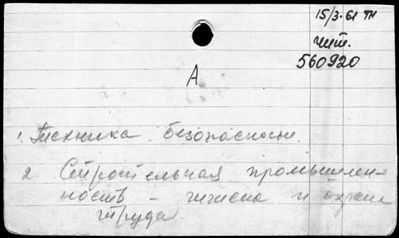 15/3-61 ТН
чит.
560920
А
1. Техника безопасности.
2 Строительная промышлен-
ность - гигиена и охрана
труда.